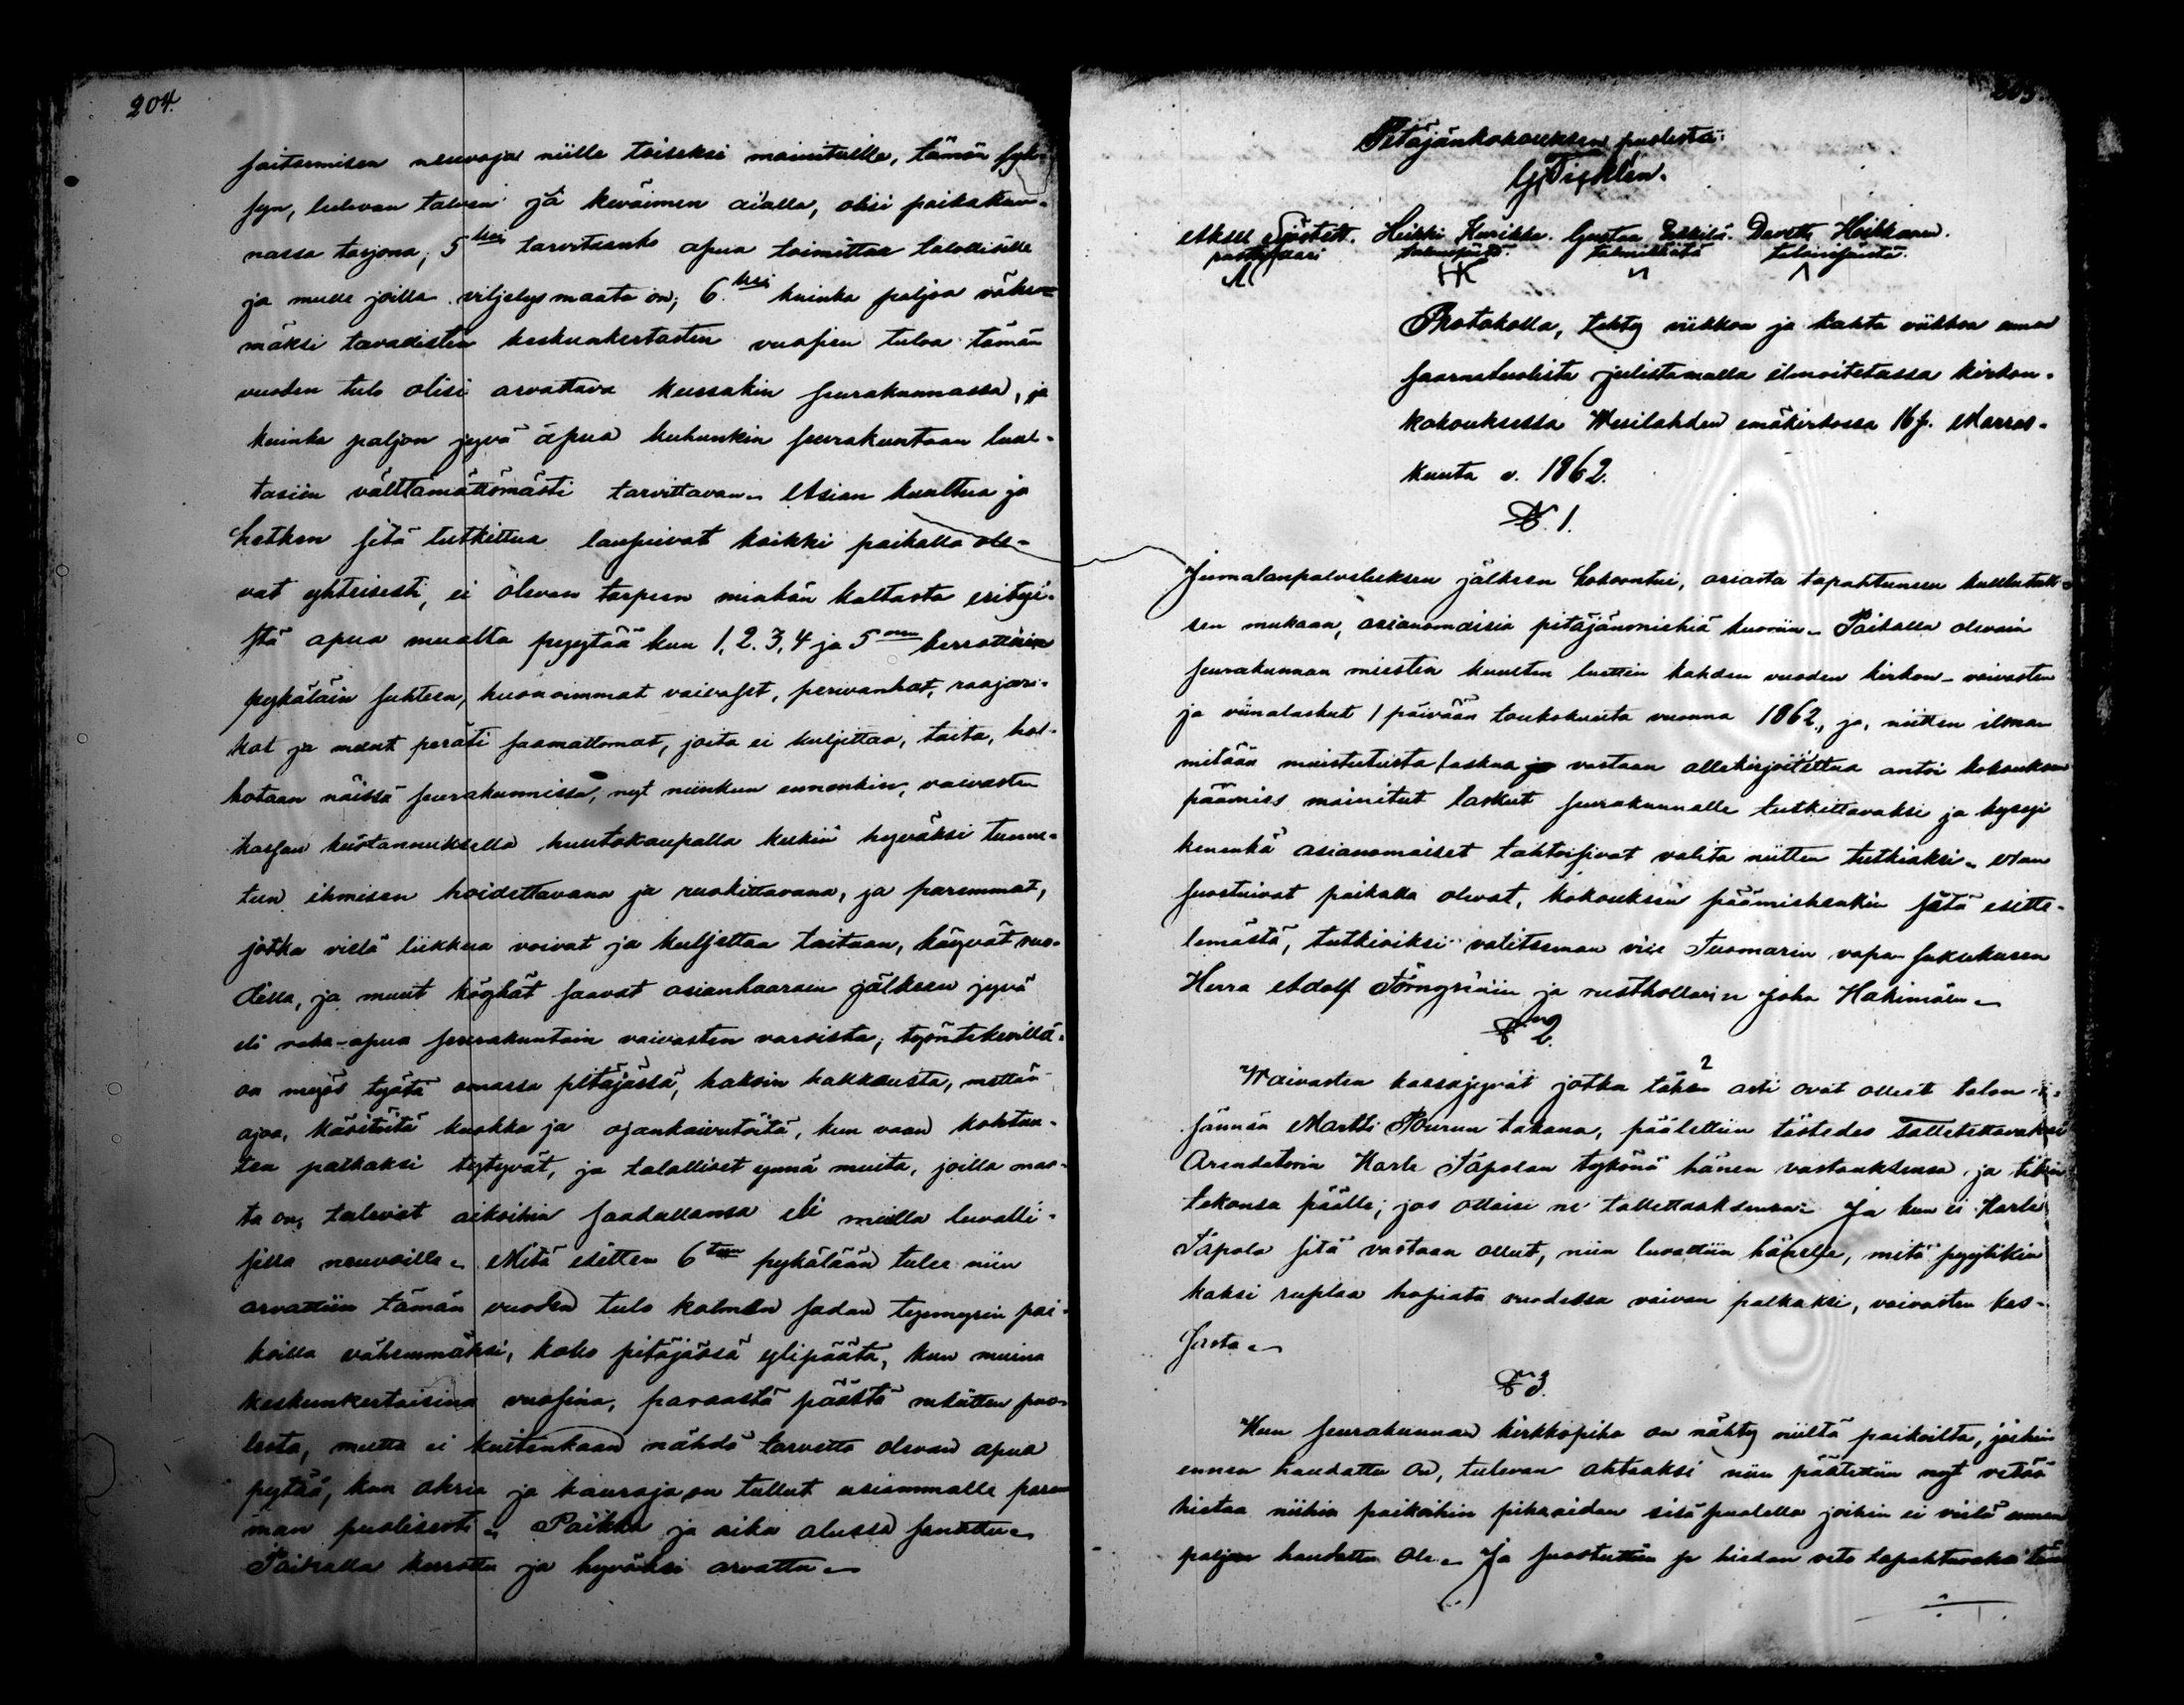 204.
saitermisen neuvoja niille toiseksi mainituille, tämän syk-
syn, tulevan talven ja kevaimen ajalla, olisi paikakun-
nassa tarjona; 5ksi tarvitaanko apua toimittaa talollisille
ja muille joilla viljelysmaata on; 6.ksi kuinka paljon vähem-
mäksi tavallisten keskunkertasten vuosien tuloa tämän
vuoden tulo olisi arvattava kussakin seurakunnassa, ja
kuinka paljon jyvä apua kuhunkin seurakuntaan luul-
tasiin välttämättömästi tarvittavan. Asian kuultua ja
hetken sitä tutkittua lausuivat kaikki paikalla ole-
vat yhteisesti, ei olevan tarpeen minkän kaltasta erityi-
stä apua muualta pyytää kun 1, 2. 3, 4 ja 5 kerrottuin
pykäläin suhteen, huonoimmat vaivaset, perivanhat, raajari-
kot ja muut peräti saamattomat, joita ei kuljettaa, taita, hol-
hotaan näissä seurakunnissa, nyt niinkun ennenkin, vaivasten
kassan kustannuksella huutokaupalla kukin hyväksi tunne-
tun ihmisen hoidettavana ja ruokittavana, ja paremmat,
jotka vielä liikkua voivat ja kuljettaa taitaan, käyvät ruo-
dilla, ja muut köyhät saavat asianhaaraen jälkeen jyvä
eli raha-apua seurakuntain vaivasten varoista; työntekevillä
on myös työtä omassa pitäjässä, haloin hakkausta, mettän
ajoa, käsitöitä kuokka ja ojankaivutöitä, kun vaan kohtuu-
teen palkaksi tytyvät, ja talolliset ynnä muita, joilla maa-
ta on, tulevat aikoihin saadullansa eli muilla luvalli-
silla neuvoilla. Mitä sitten 6 pykälään tulee niin
arvattiin tämän vuoden tulo kolmen sadan tynnyrin pai-
koilla vähemmäksi, koko pitäjässä ylipäätä, kun muina
keskunkertaisina vuosina, parasta päästä rukiitten puo-
lesta, mutta ei kuitenkaan nähdä tarvetta olevan apua
pytää, kun ohria ja kauroja on tullut usiammalle parem
man puolisesti. Paikka ja aika alussa sanottu.
Paikalla kerrottu ja hyväksi arvattu.
205.
Pitäjänkokouksen puolesta:
Aksel Sjöstedt. Heikki Kurikka. Gustaa Eskilä. Davetti Heikkanen.
rusthollari talonisäntä. talonisäntä talonisäntä.
HK
Protokolla, tehty viikkoa ja kahta viikkoa ennen
saarnatuolista julistamalla ilmoitetussa kirkon-
kokouksessa Wesilahden emäkirkossa 16 p. Marras-
kuuta v. 1862.
§. 1.
Jumalanpalveluksen jälkeen kokoontui, asiasta tapahtuneen kuulutuk-
sen mukaan, asianomaisia pitäjänmiehiä huoneen. Paikalla olevain
seurakunnan miesten kuulten luettiin kahden vuoden kirkon- vaivasten
ja viinalaskut 1 päivään toukokuuta vuonna 1862, ja, niitten ilman
mitään muistutusta laskua vastaan allekirjoitettua antoi kokouksen
päämies mainitut laskut seurakunnalle tutkittavaksi ja kysyi
kenenkä asianomaiset tahtoisivat valita niitten tutkiaksi.
suostuivat paikalla olevat, kokouksen päämiehenkin sitä esitte-
lemästä, tutkioiksi valitseman vice Tuomarin vapa-sukukusen
Herra Adolf Törngrenin ja rusthollarin Juha Hakimäen.
§ 2.
Waivasten kassajyvät jotka tähän asti ovat olleet talon i-
sännän Martti Pourun takana, päätettiin tästedes talletettavaksi
Arendatorin Karle Tapolan tykönä hänen vastauksensa ja tilin
tekonsa päälle; jos ottaisi ne tallettaaksensa. Ja kun ei Karle
Tapola sitä vastaan ollut, niin luvattiin hänelle, mitä pyytikin
kaksi ruplaa hopiata vuodessa vaivan palkaksi, vaivasten kas-
sasta.
§ 3.
Kun seurakunnan kirkkopiha on nähty niiltä paikoilta, joihin
ennen haudattu on, tulevan ahtaaksi niin päätettiin nyt vetää
hietaa niihin paikoihin pihaaidan sisäpuolella joihin ei vielä ennen
paljon haudattu ole. Ja suostuttiin se hiedan veto tapahtuvaksi